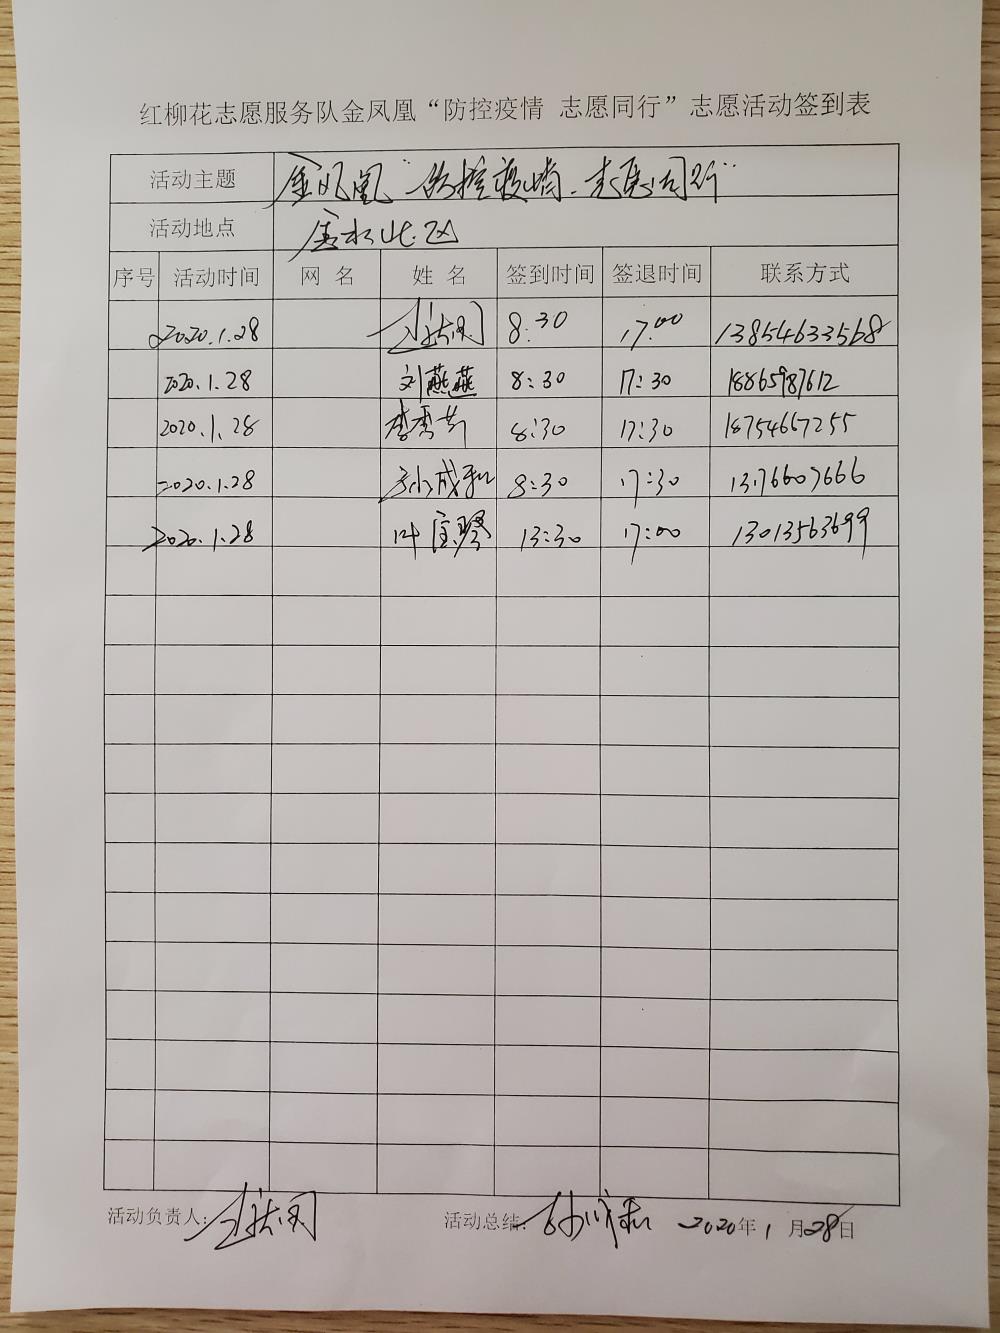 红柳花志愿服务队金凤凰“防控疫情 志愿同行”志愿活动签到表
活动主题 金凤凰“防控疫情.志愿同行”
活动地点 金水北区
序号 活动时间 网 名 姓 名 签到时间 签退时间 联系方式
2020.1.28 8:30 17:00 13854633568
2020.1.28 刘燕燕 8:30 17:30 18865987612
2020.1.28 李秀芳 8:30 17:30 18754667255
2020.1.28 孙成和 8:30 17:30
2020.1.28 叶宝琴 13:30 17:00 13013563699
活动负责人: 活动总结: 孙成和 2020年1月28日